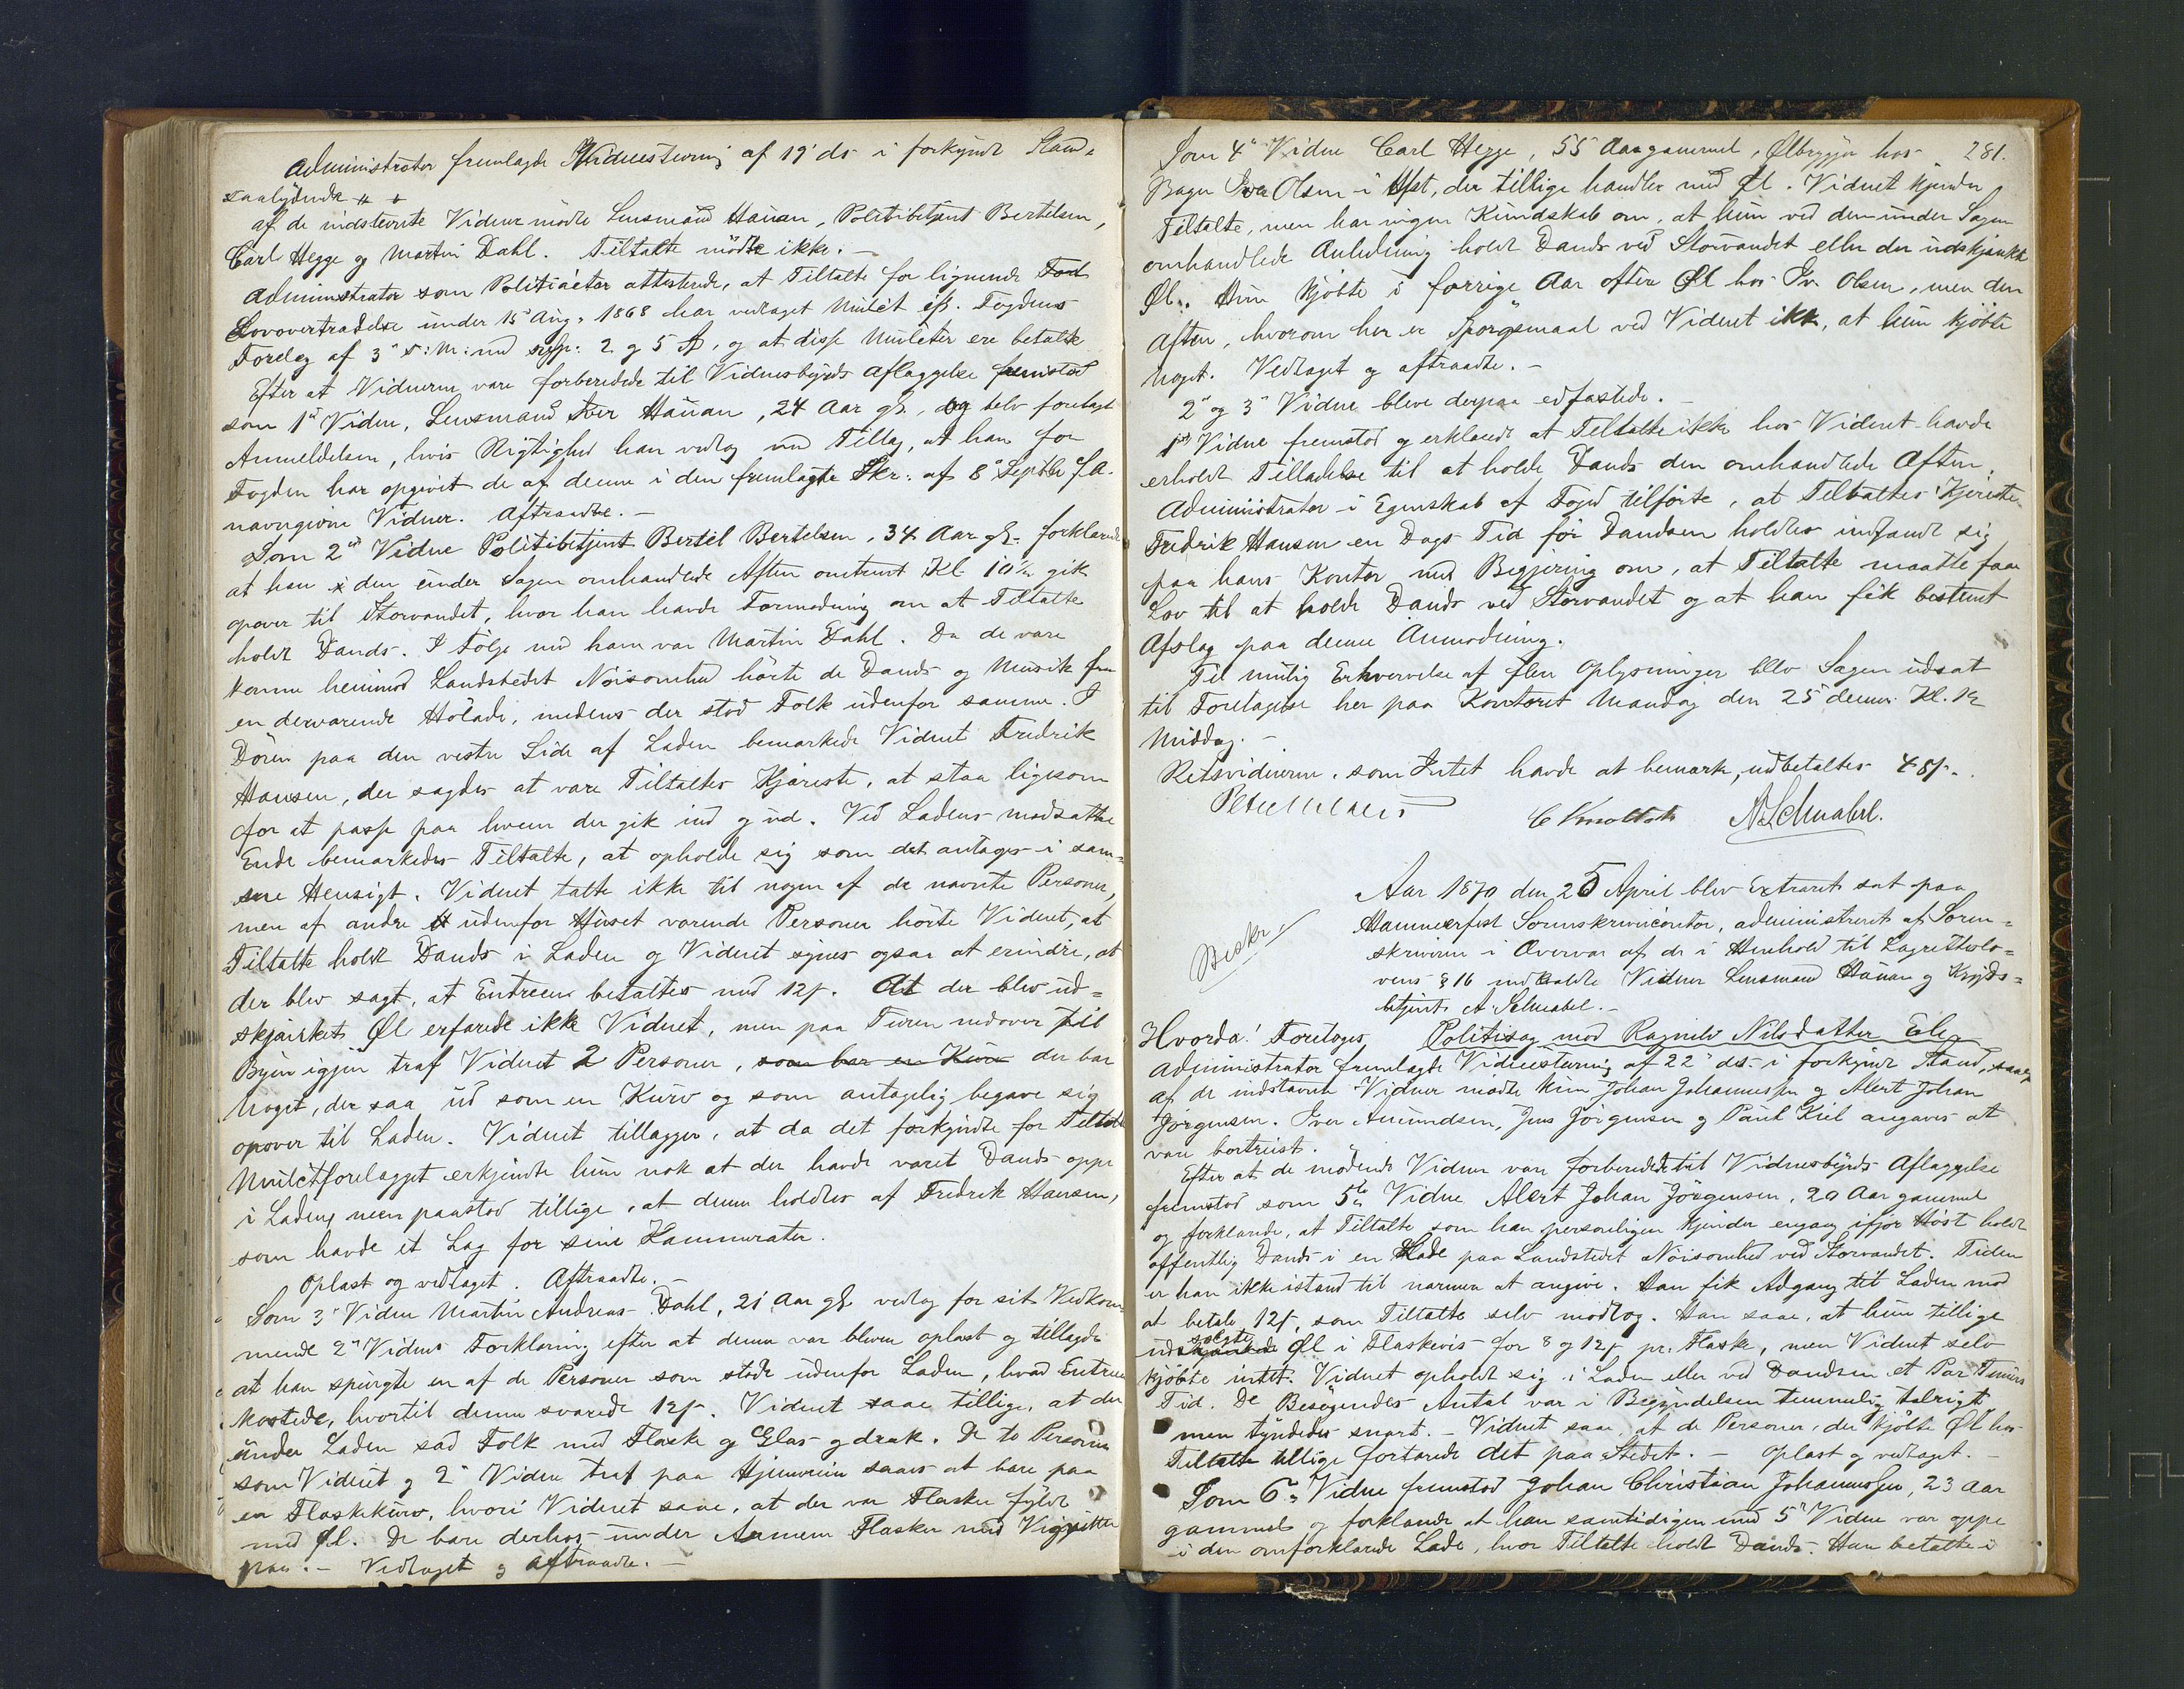 Administrator fremlagde Vidnestevning af 19' ds i forkyndt Stand
saalydende # #
af de indstevnte Vidner mødte Lensmand Hauan, Politibetjent Bertelsen,
Carl Hegge og Martin Dahl. Tiltalte mødte ikke. —
Administrator som Politiactor attesterede, at Tiltalte for lignende
Lovovertrædelse under 15' Aug. 1868 har vedtaget Mulct efs. Fogdens
Forelæg af 3' s: M: med resp: 2 og 5 , og at disse Mulcter ere betalte
Efter at Vidnerne vare forberedede til Vidnesbyrds Aflæggelse fremstod
som 1st Vidne, Lensmand Iver Hauan, 24 Aar gl., og blev forelagt
Anmeldelsen, hvis Rigtighed han vedtog med Tillæg, at han for
Fogden har opgivet de af denne i den fremlagte Skr: af 8' Septbr f. A.
navngivne Vidner. Aftraadte. —
Som 2det Vidne Politibetjent Bertel Bertelsen, 34 Aar gl. forklarede
at han i den under Sagen omhandlede Aften omtrent Kl. 10½ gik
opover til Storvandet, hvor han havde Formodning om at Tiltalte
holdt Dands. I Følge med ham var Martin Dahl. Da de vare
komne henimod Landstedet Nøisomhed hørte de Dands og Musik fra
en derværende Hølade, medens der stod Folk udenfor samme. I
Døren paa den vestre Side af Laden bemærkede Vidnet Fredrik
Hansen, der sagdes at være Tiltaltes Kjæreste, at staa ligesom
for at passe paa hvem der gik ind og ud. Ved Ladens modsatte
Ende bemærkedes Tiltalte, at opholde sig som det antages i sam=
me Hensigt. Vidnet talte ikke til nogen af de nævnte Personer,
men af andre udenfor Huset værende Personer hørte Vidnet, at
Tiltalte holdt Dands i Laden og Vidnet synes ogsaa at erindre, at
der blev sagt, at Entreen betaltes med 12 s. At der blev ud=
skjænket Øl erfarede ikke Vidnet, men paa Turen nedover til
Byen igjen traf Vidnet 2 Personer, som bar en Kurv der bar
Noget, der saa ud som en Kurv og som antagelig begave sig
opover til Laden. Vidnet tillægger, at da det forkyndte for Tiltalte
Mulctforelægget erkjendte hun nok at der havde været Dands oppe
i Laden, men paastod tillige, at denne holdtes af Fredrik Hansen,
som havde et Lag for sine Kammerater.
Oplæst og vedtaget. Aftraadte. —
Som 3' Vidne Martin Andreas Dahl, 21 Aar gl. vedtog for sit Vedkom
mende 2' Vidnes Forklaring efter at denne var bleven oplæst og tillagde
at han spurgte en af de Personer som stode udenfor Laden, hvad Entreen
kostede, hvortil denne svarede 12 s. Vidnet saae tillige, at der
under Laden sad Folk med Flaske og Glas og drak. De to Personer
som Vidnet og 2' Vidne traf paa Hjemveien saaes at bære paa
en Flaskekurv, hvori Vidnet saae, at der var Flasker fyldt
med Øl. De bare derhos under Armene Flasker med
paa. — Vedtaget og Aftraadte. —
281.
Som 4' Vidne Carl Hegge, 55 Aar gammel, Ølbrygger hos
Bager Iver Olsen i Hfst, der tillige handler med Øl. Vidnet kjender
Tiltalte, men har ingen Kundskab om, at hun ved den under Sagen
omhandlede Anledning holdt Dands ved Storvandet eller der udskjænkede
Øl. Hun kjøbte i forrige Aar oftere Øl hos Iv. Olsen, men den
Aften, hvorom her er Spørgsmaal ved Vidnet ikke, at hun kjøbte
Noget. Vedtaget og aftraadte. —
2' og 3' Vidne bleve derpaa edfæstede. —
1ste Vidne fremstod og erklærede at Tiltalte ikke hos Vidnet havde
erholdt Tilladelse til at holde Dands den omhandlede Aften.
Administrator i Egenskab af Foged tilførte, at Tiltaltes Kjæreste
Fredrik Hansen en Dags Tid før Dandsen holdtes indfandt sig
paa hans Kontor med Begjæring om, at Tiltalte maatte faae
Lov til at holde Dands ved Storvandet og at han fik bestemt
Afslag paa denne Anmodning.
Til mulig Erhvervelse af flere Oplysninger blev Sagen udsat
til Foretagelse her paa Kontoret Mandag den 25 dennes Kl. 12
Middag. —
Retsvidnerne, som Intet havde at bemærke, udbetaltes 48 s.
A. Schnabel.
Aar 1870 den 25 April blev Extraret sat paa
Hammerfest Sorenskrivercontor, administreret af Soren=
skriveren i Overvær af de i Henhold til Lagrettelo=
vens § 16 indkaldte Vidner Lensmand Hauan og Krigs=
betjent A. Schnabel. —
Beskr.
Hvorda! Foretoges Politisag mod Ragnild Nilsdatter
Administrator fremlagde Vidnestevning af 22' ds. i forkyndt Stand,
af de indstævnte Vidner mødte kun Johan Johannessen og Alert Johan
Jørgensen. Iver Amundsen, Jens Jørgensen og Paul Kiil angaves at
være bortreist.
Efter at de mødende Vidner vare forberedede til Vidnesbyrds Aflæggelse
fremstod som 5te Vidne Alert Johan Jørgensen, 20 Aar gammel
og forklarede, at Tiltalte som han personligen kjender engang ifjor Høst holdt
offentlig Dands i en Lade paa Landstedet Nøisomhed ved Storvandet. Tiden
er han ikke istand til nærmere at angive. Han fik Adgang til Laden mod
at betale 12 s, som Tiltalte selv modtog. Han saae, at hun tillige
solgte
udskjænkede Øl i Flaskevis for 8 og 12 s pr. Flaske, men Vidnet selv
kjøbte intet. Vidnet opholdt sig i Laden eller ved Dandsen et Par Timers
Tid. De Besøgendes Antal var i Begyndelsen temmelig talrigt
men tyndedes snart. — Vidnet saae, at de Personer, der kjøbte Øl hos
Tiltalte tillige fortærede det paa Stedet. — Oplæst og vedtaget. —
Som 6' Vidne fremstod Johan Christian Johannessen, 23 Aar
gammel og forklarede at han samtidigen med 5' Vidne var oppe
i den omforklarede Lade, hvor Tiltalte holdt Dands. Han betalte i